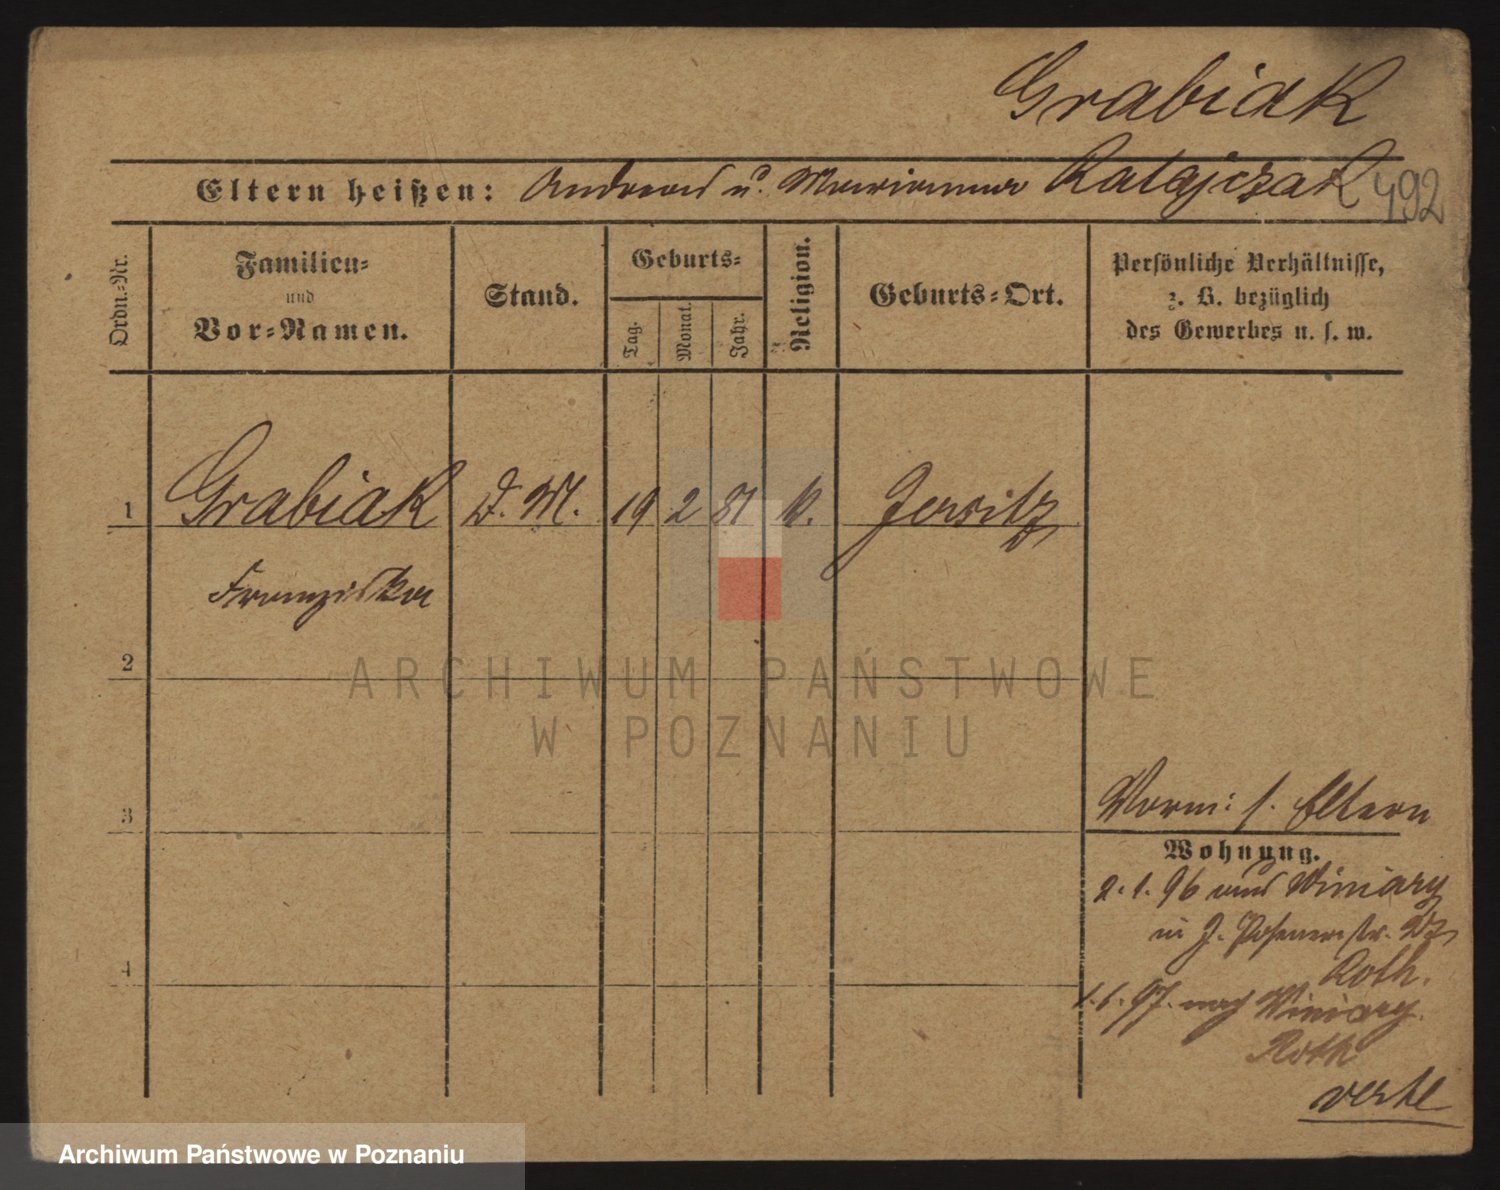 Grabiak
Eltern heißen: Andreas u. Marianna Ratajczak 492
Ordn.-Nr.
Familien-
und
Vor-Namen.
Stand.
Geburts-
Tag.
Monat.
Jahr.
Religion.
Geburts-Ort.
Persönliche Verhältnisse,
z. B. bezüglich
des Gewerbes u. s. w.
1 Grabiak D. M. 19 2 81 k. Jersitz
Franziska
2
ARCHIWUM PAŃSTWOWE
W POZNANIU
3
Vorm: s. Eltern
Wohnung.
2.1.96 aus Winiary
in J. Posenerstr.
4
Roth.
1.1.97. nach Winiary.
Roth
verte
Archiwum Państwowe w Poznaniu